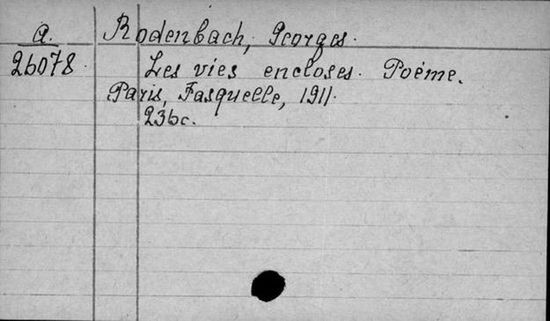 a. Rodenbach, Georges.
26078. Les vies encloses. Poème.
Paris, Fasquelle, 1911.
236c.